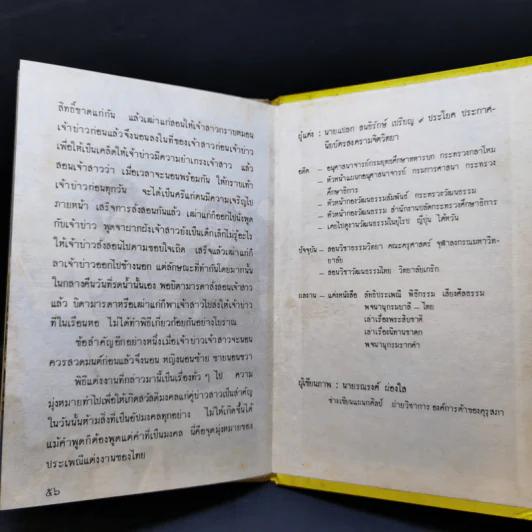 สิทธิ์ขาดแก่กัน แล้วเฒ่าแก่สอนให้เจ้าสาวกราบหมอน
เจ้าบ่าวก่อนแล้วจึงนอนลงในที่ของเจ้าสาวก่อนเจ้าบ่าว
เพื่อให้เป็นเคล็ดให้เจ้าบ่าวมีความยำเกรงเจ้าสาว แล้ว
สอนเจ้าสาวว่า เมื่อเวลาจะนอนพร้อมกัน ให้กราบเท้า
เจ้าบ่าวก่อนทุกวัน จะได้เป็นศรีแก่ตนมีความเจริญไป
ภายหน้า เสร็จการสั่งสอนกันแล้ว เฒ่าแก่ก็ออกไปนั่งพูด
กับเจ้าบ่าว พูดจาฝากฝังเจ้าสาวยังเป็นเด็กเล็กไม่รู้อะไร
ให้เจ้าบ่าวสั่งสอนไปตามชอบใจเถิด เสร็จแล้วเฒ่าแก่ก็
ลาเจ้าบ่าวออกไปข้างนอก แต่ลักษณะที่ทำกันโดยมากนั้น
ในกลางคืนวันที่รดน้ำนั้นเอง พอบิดามารดาสั่งสอนเจ้าสาว
แล้ว บิดามารดาหรือเฒ่าแก่ก็พาเจ้าสาวไปส่งให้เจ้าบ่าว
ที่ในเรือนหอ ไม่ได้ทำพิธีเกี่ยวก้อยกันอย่างโบราณ
ข้อสำคัญอีกอย่างหนึ่งเมื่อเจ้าบ่าวเจ้าสาวจะนอน
ควรสวดมนต์ก่อนแล้วจึงนอน หญิงนอนซ้าย ชายนอนขวา
พิธีแต่งงานที่กล่าวมานี้เป็นเรื่องทั่ว ๆ ไป ความ
มุ่งหมายทำไปเพื่อให้เกิดสวัสดิมงคลแก่คู่บ่าวสาวเป็นสำคัญ
ในวันนั้นห้ามสิ่งที่เป็นอัปมงคลทุกอย่าง ไม่ให้เกิดขึ้นได้
แม้คำพูดก็ต้องพูดแต่คำที่เป็นมงคล นี่คือจุดมุ่งหมายของ
ประเพณีแต่งงานของไทย
๕๖
ผู้แต่ง : นายแปลก สนธิรักษ์ เปรียญ ๙ ประโยค ประกาศ-
นียบัตรสงครามจิตวิทยา
อดีต - อนุศาสนาจารย์กรมยุทธศึกษาทหารบก กระทรวงกลาโหม
- หัวหน้าแผนกอนุศาสนาจารย์ กรมการศาสนา กระทรวง
ศึกษาธิการ
- หัวหน้ากองวัฒนธรรมสัมพันธ์ กระทรวงวัฒนธรรม
- หัวหน้ากองวัฒนธรรม สำนักงานปลัดกระทรวงศึกษาธิการ
- เคยไปดูงานวัฒนธรรมในยุโรป ญี่ปุ่น ไต้หวัน
ปัจจุบัน - สอนวิชาธรรมวิทยา คณะครุศาสตร์ จุฬาลงกรณมหาวิท-
ยาลัย
- สอนวิชาวัฒนธรรมไทย วิทยาลัยเกริก
ผลงาน - แต่งหนังสือ ลัทธิประเพณี พิธีกรรม เสียงศีลธรรม
พจนานุกรมบาลี - ไทย
เล่าเรื่องพระสิบชาติ
เล่าเรื่องนิทานชาดก
พจนานุกรมรากคำ
ผู้เขียนภาพ : นายรณรงค์ ผ่องใส
ช่างเขียนแผนกศิลป์ ฝ่ายวิชาการ องค์การค้าของคุรุสภา